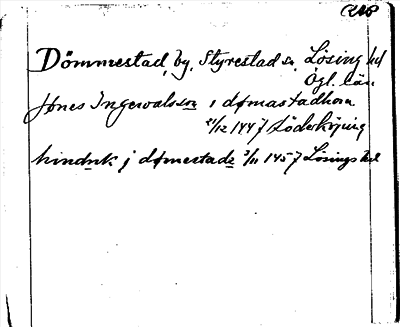 Dömmestad, by, Styrestad sn, Lösing hd
Ögl. län
Jønes Ingewalsson i dømastadhom
21/12 1447 Söderköping
hindrik j dømestada 3/11 1457 Lösings hd